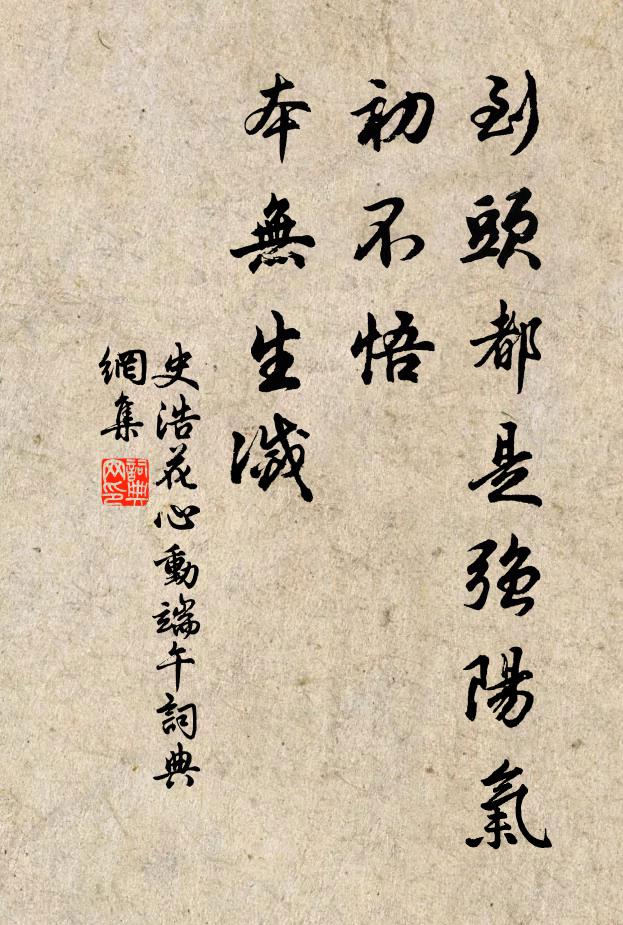 到頭都是強陽氣
初不悟
本無生滅
史浩花心動端午詞典
網集
詞典網印